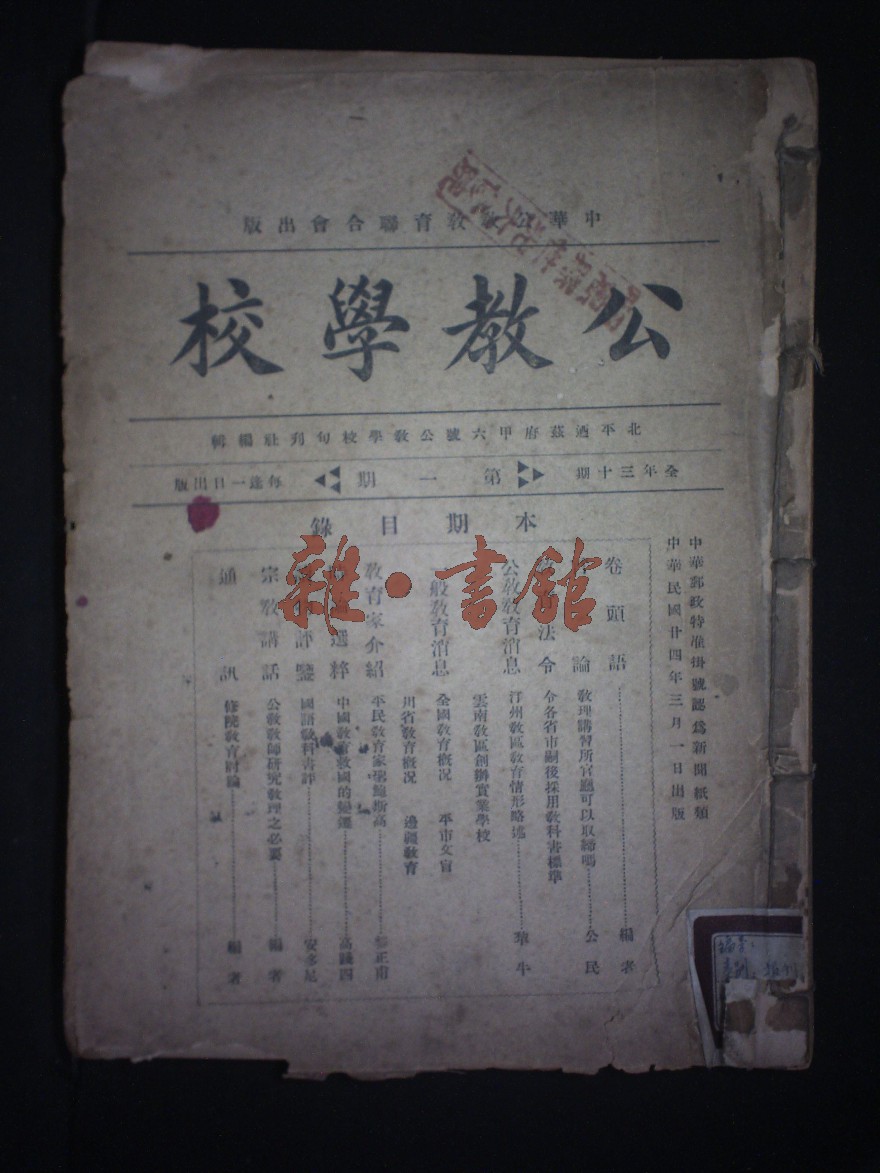 中華公教教育聯合會出版
公教學校
北平迺茲府甲六號公教學校旬刊社編輯
全年三十期
第一期
每逢一日出版
中華郵政特准掛號認為新聞紙類
中華民國廿四年三月一日出版
本期目錄
卷頭語 編者
論 教理講習所官廳可以取締嗎 公民
法令 令各省市嗣後採用教科書標準
公教教育消息 汀州教區教育情形略述 華牛
雲南教區創辦實業學校
般教育消息 全國教育概況 平市文盲
川省教育概況 邊疆教育
教育家介紹 平民教育家鮑斯高 正甫
選粹 中國教育救國的變遷 高踐四
評鑒 國語教科書評 安多尼
宗教講話 公教教師研究教理之必要 編者
通訊 修院教育討論 編者
雜·書館